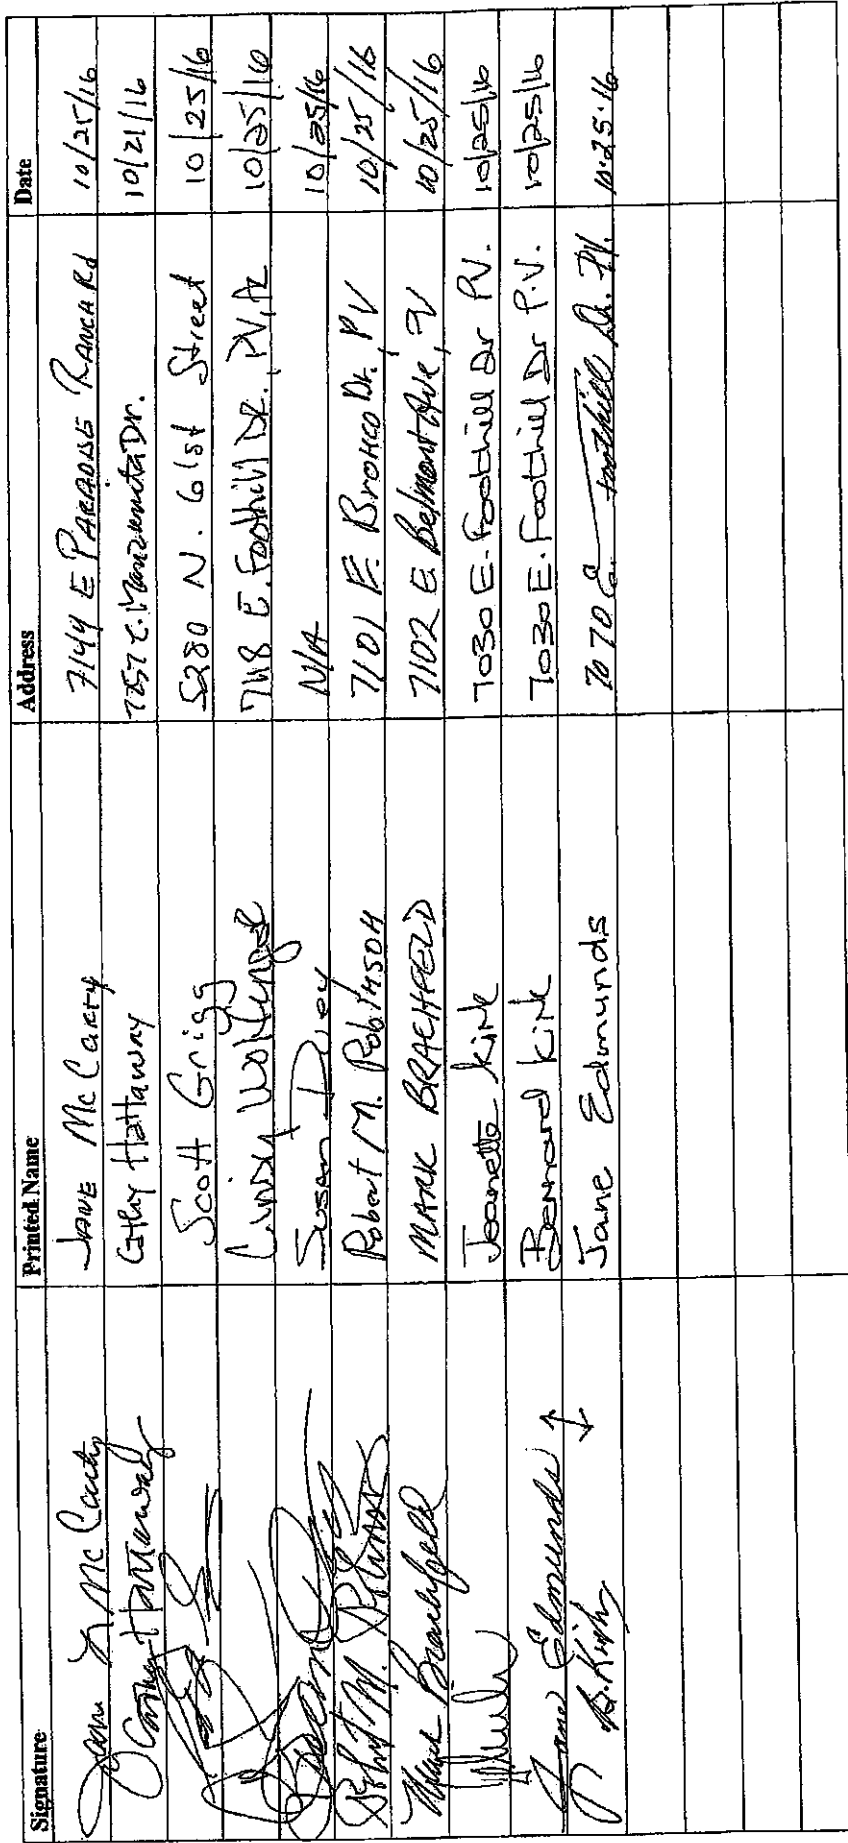 Signature Printed Name Address Date
Jane McCarty JANE McCarty 7144 E PARADISE RANCH Rd 10/25/16
Cathy Hattaway Cathy Hattaway E. Manzanita Dr. 10/21/16
Scott Grigg 5280 N. 61st Street 10/25/16
Cindy 7118 E. Foothill DR., PV, AZ 10/25/16
Susan N/A 10/25/16
Robert M. Robinson Robert M. Robinson 7101 E. Bronco Dr., PV 10/25/16
Mark Brachfeld MARK BRACHFELD 7102 E. Belmont Ave, PV 10/25/16
Jeanette Kirk 7030 E. Foothill Dr P.V. 10/25/16
Jane Edmunds ↑ Bernard Kirk 7030 E. Foothill Dr P.V. 10/25/16
B. Kirk ↓ Jane Edmunds 7070 E. Foothill Dr. P.V. 10.25.16